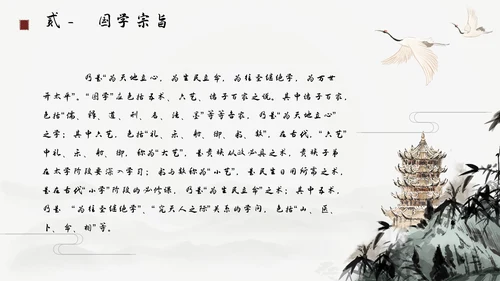 贰 - 国学宗旨
乃是“为天地立心，为生民立命，为往圣继绝学，为万世
开太平”。“国学”应包括五术、六艺、诸子百家之说。其中诸子百家，
包括“儒、释、道、刑、名、法、墨”等等各家，乃是“为天地立心”
之学；其中六艺，包括“礼、乐、射、御、书、数”，在古代，“六艺”
中礼、乐、射、御，称为“大艺”，是贵族从政必具之术，贵族子弟
在太学阶段要深入学习；书与数称为“小艺”，是民生日用所需之术，
是在古代“小学”阶段的必修课，乃是“为生民立命”之术；其中五术，
乃是 “为往圣继绝学”、“究天人之际”关系的学问，包括“山、医、
卜、命、相”等。